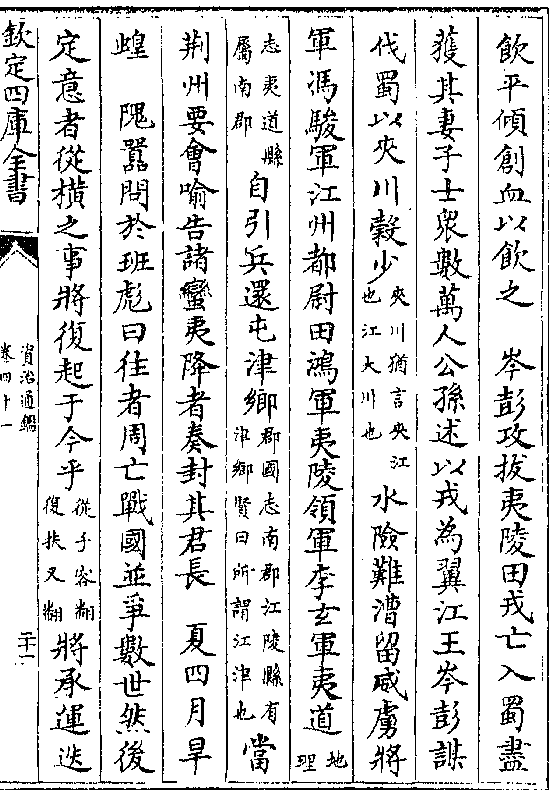 飲平傾創血以飲之　岑彭攻拔夷陵田戎亡入蜀盡
獲其妻子士衆數萬人公孫述以戎為翼江王岑彭謀
伐蜀以夾川穀少夾川猶言夾江也江大川也水險難漕留威虜將
軍馮駿軍江州都尉田鴻軍夷陵領軍李玄軍夷道地理
志夷道縣屬南郡自引兵還屯津鄉郡國志南郡江陵縣有津鄉賢曰所謂江津也當
荆州要會喻告諸蠻夷降者奏封其君長　夏四月旱
蝗　隗囂問於班彪曰往者周亡戰國並爭數世然後
定意者從橫之事將復起于今乎從子容翻復扶又翻將承運迭
欽定四庫全書
資治通鑑
卷四十一
二十一